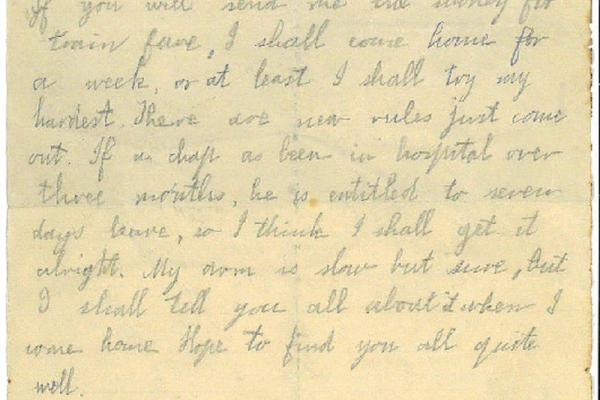 If you will send me the money for
train fare, I shall come home for
a week, or at least I shall try my
hardest. There are new rules just come
out. If a chap as been in hospital over
three months, he is entitled to seven
days leave, so I think I shall get it
alright. My arm is slow but sure, but
I shall tell you all about it when I
come home Hope to find you all quite
well.